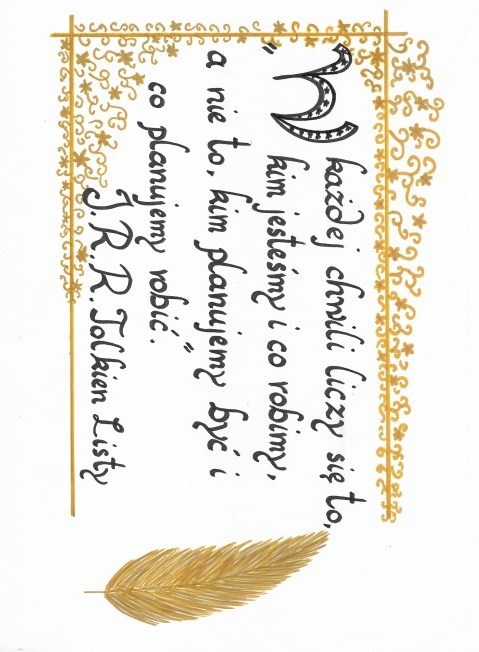 „W każdej chwili liczy się to,
kim jesteśmy i co robimy,
a nie to, kim planujemy być i
co planujemy robić."
J.R.R. Tolkien Listy